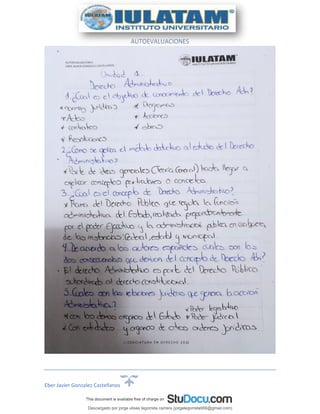 IULATAM
INSTITUTO UNIVERSITARIO
AUTOEVALUACIONES
AUTOEVALUACIONES
EBER JAVIER GONZALEZ CASTELLANOS
IULATAM
INSTITUTO UNIVERSITARIO
Unidad 1.
Derecho Administrativo
1. ¿Cual es el objetivo de conocimiento del Derecho Adm?
* normas Jurídicas * Organismos
* Actos * Acciones
* contratos * obras
* Resoluciones
2. ¿Cómo se aplica el método deductivo al estudio del Derecho
Administrativo?
* Parte de ideas generales (Teoría General) hasta llegar a
explicar conceptos particulares o concretos.
3. ¿Cual es el concepto de Derecho Administrativo?
* Rama del Derecho Público que regula la función
administrativa del Estado, realizada preponderantemente
por el poder Ejecutivo y la administración pública en cualquiera
de las instancias federal, estatal y municipal
4. De acuerdo a los autores españoles cuales son las
dos consecuencias que derivan del concepto de Derecho Adm?
· El derecho Administrativo es parte del Derecho Público
subordinado al derecho constitucional.
5. Cuales son las relaciones Jurídicas que genera la acción
Administrativa? * Poder legislativo
* con los demás organos del Estado * Poder Judicial
* Con entidades y organos de otros ordenes Jurídicos
LICENCIATURA EN DERECHO 2021
Eber Javier Gonzalez Castellanos
This document is available free of charge on StuDocu.com
Descargado por jorge ulises lagorreta carrera (jorgelagorreta666@gmail.com)